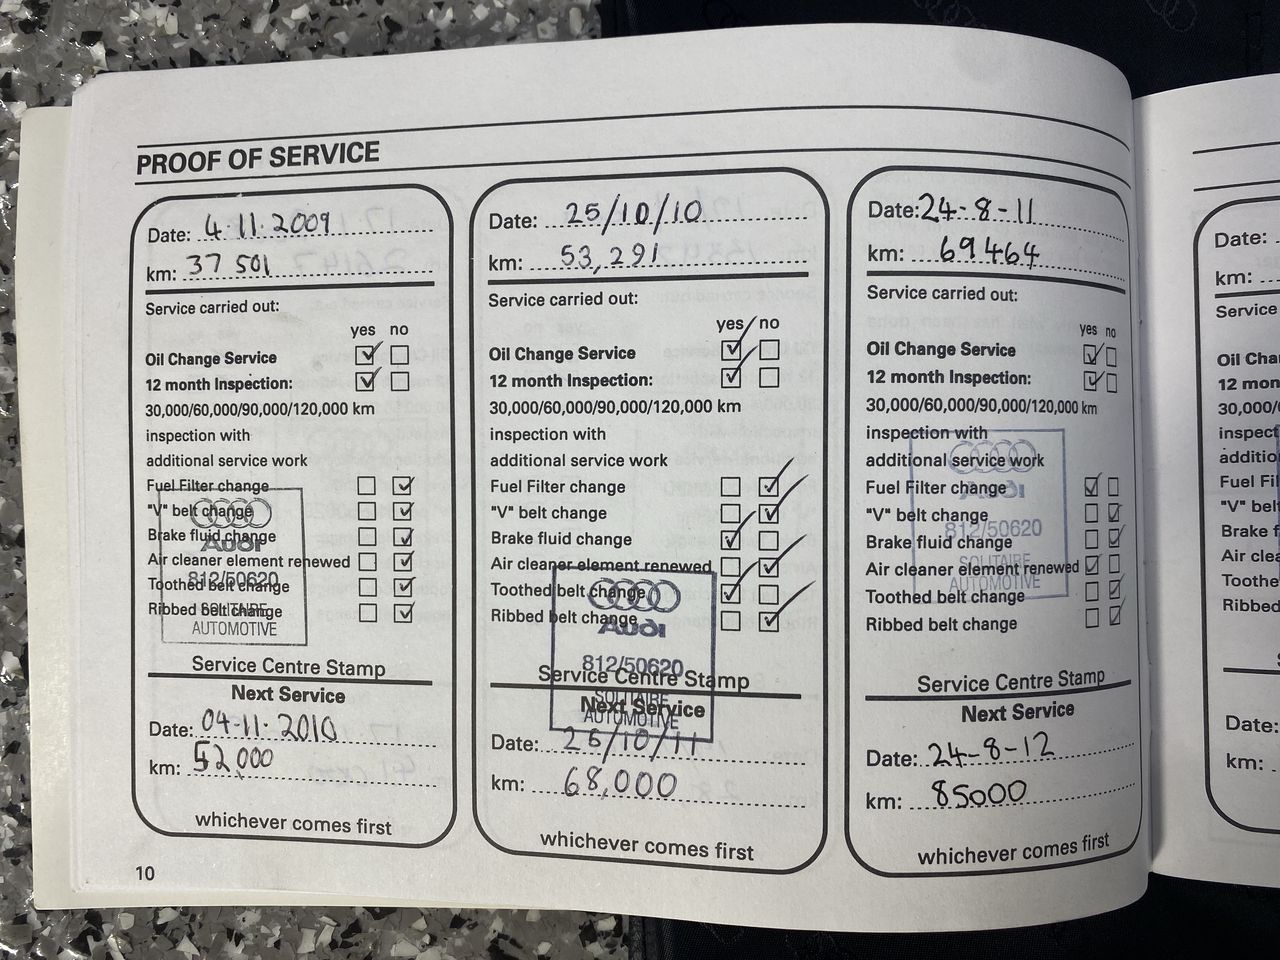 PROOF OF SERVICE
Date: 4.11.2009
km: 37 501
Service carried out:
yes no
Oil Change Service
12 month Inspection:
30,000/60,000/90,000/120,000 km
inspection with
additional service work
Fuel Filter change
"V" belt change
Brake fluid change
Air cleaner element renewed
Toothed belt change
Ribbed belt change
Audi
812/50620
SOLITAIRE
AUTOMOTIVE
Service Centre Stamp
Next Service
Date: 04-11-2010
km: 52,000
whichever comes first
Date: 25/10/10
km: 53,291
Service carried out:
yes no
Oil Change Service
12 month Inspection:
30,000/60,000/90,000/120,000 km
inspection with
additional service work
Fuel Filter change
"V" belt change
Brake fluid change
Air cleaner element renewed
Toothed belt change
Ribbed belt change
Audi
812/50620
SOLITAIRE
AUTOMOTIVE
Service Centre Stamp
Next Service
Date: 25/10/11
km: 68,000
whichever comes first
Date: 24-8-11
km: 69464
Service carried out:
yes no
Oil Change Service
12 month Inspection:
30,000/60,000/90,000/120,000 km
inspection with
additional service work
Fuel Filter change
"V" belt change
Brake fluid change
Air cleaner element renewed
Toothed belt change
Ribbed belt change
Audi
812/50620
SOLITAIRE
AUTOMOTIVE
Service Centre Stamp
Next Service
Date: 24-8-12
km: 85000
whichever comes first
10
Date:
km:
Service
Oil Chan
12 mon
30,000/6
inspect
additio
Fuel Fil
"V" bel
Brake f
Air clea
Toothe
Ribbed
Date:
km: